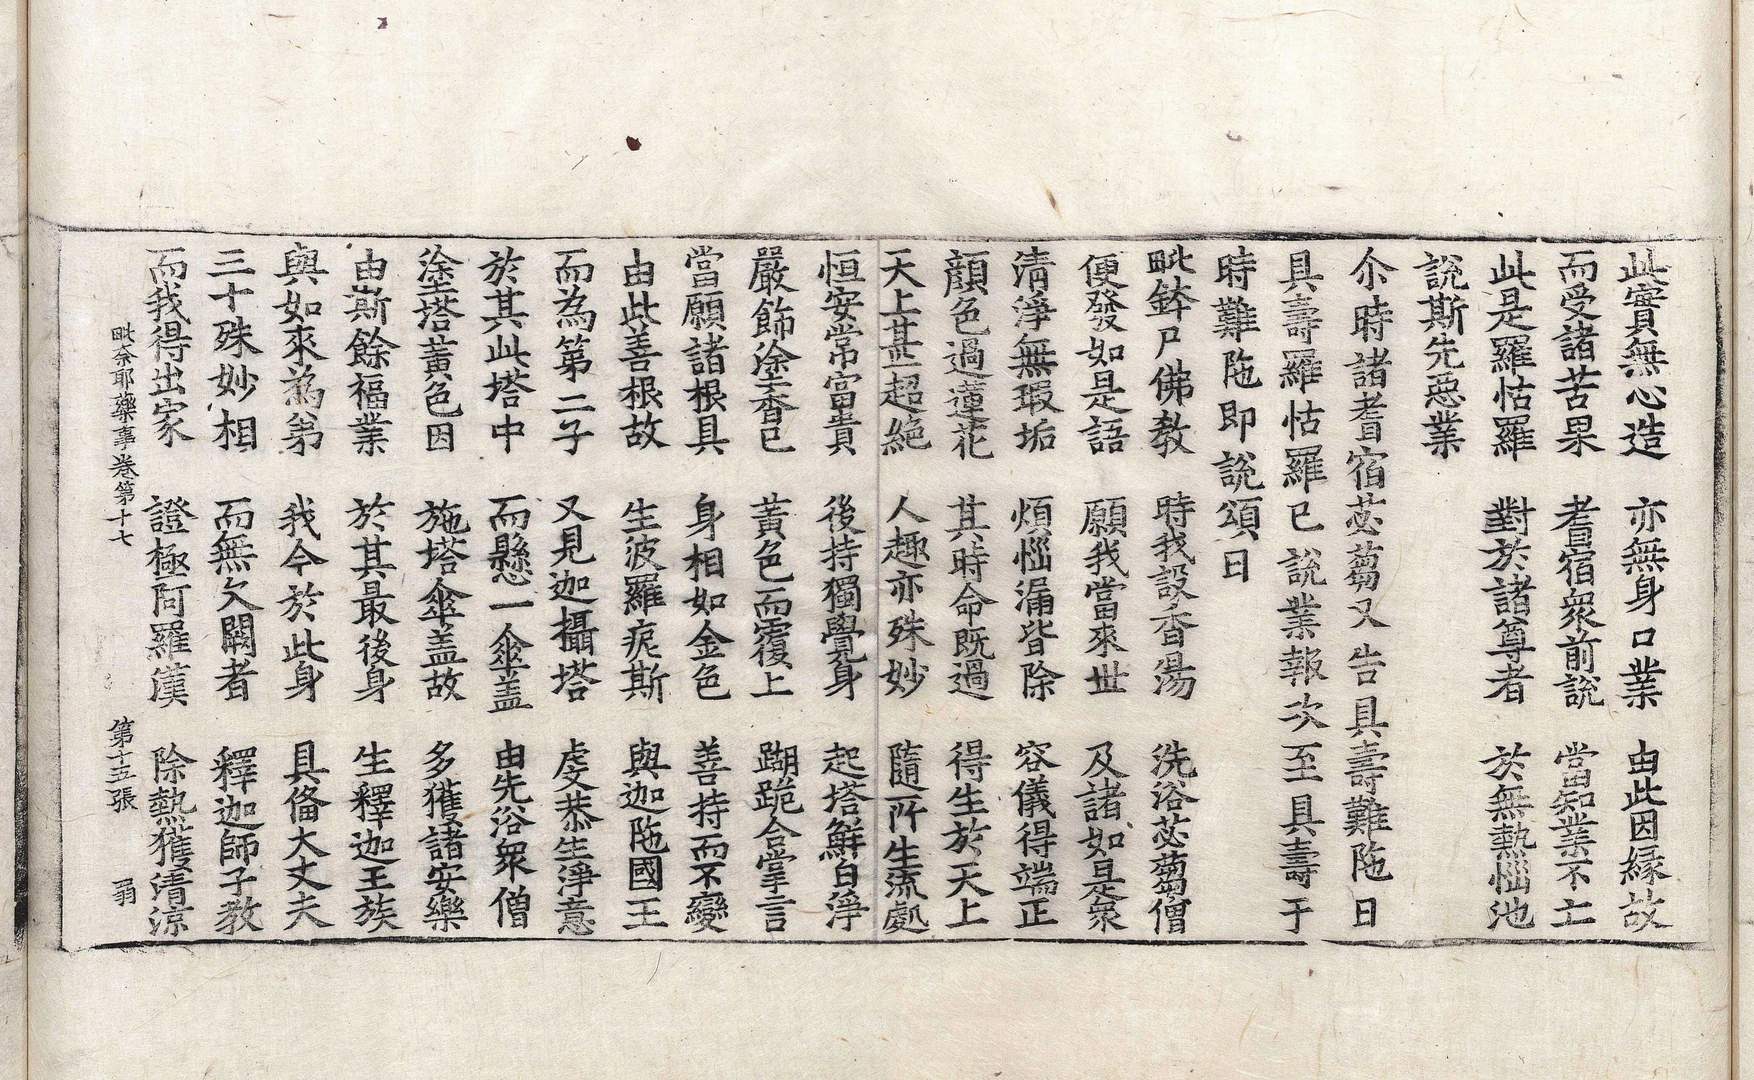 此實無心造　亦無身口業　由此因縁故
而受諸苦果　耆宿衆前說　當知業不亡
此是羅怙羅　對於諸尊者　於無熱惱池
說斯先惡業
尒時諸耆宿苾蒭又告具壽難陁曰
具壽羅怙羅已說業報次至具壽于
時難陁即說頌曰
毗鉢尸佛教　時我設香湯　洗浴苾蒭僧
便發如是語　願我當來世　及諸如是衆
清淨無瑕垢　煩惱漏皆除　容儀得端正
顔色過蓮花　其時命既過　得生於天上
天上甚超絶　人趣亦殊妙　隨所生流處
恒安常富貴　後持獨覺身　起塔鮮白淨
嚴飾塗香已　黃色而覆上　踟跪合掌言
當願諸根具　身相如金色　善持而不變
由此善根故　生波羅痆斯　與迦陁國王
而為第二子　又見迦攝塔　虔恭生淨意
於其此塔中　而懸一傘盖　由先浴衆僧
塗塔黃色因　施塔傘盖故　多獲諸安樂
由斯餘福業　於其最後身　生釋迦王族
與如來為弟　我今於此身　具俻大丈夫
三十殊妙相　而無欠闕者　釋迦師子教
而我得出家　證極阿羅漢　除熱獲清涼
毗奈耶藥事卷第十七　第十五張　翦